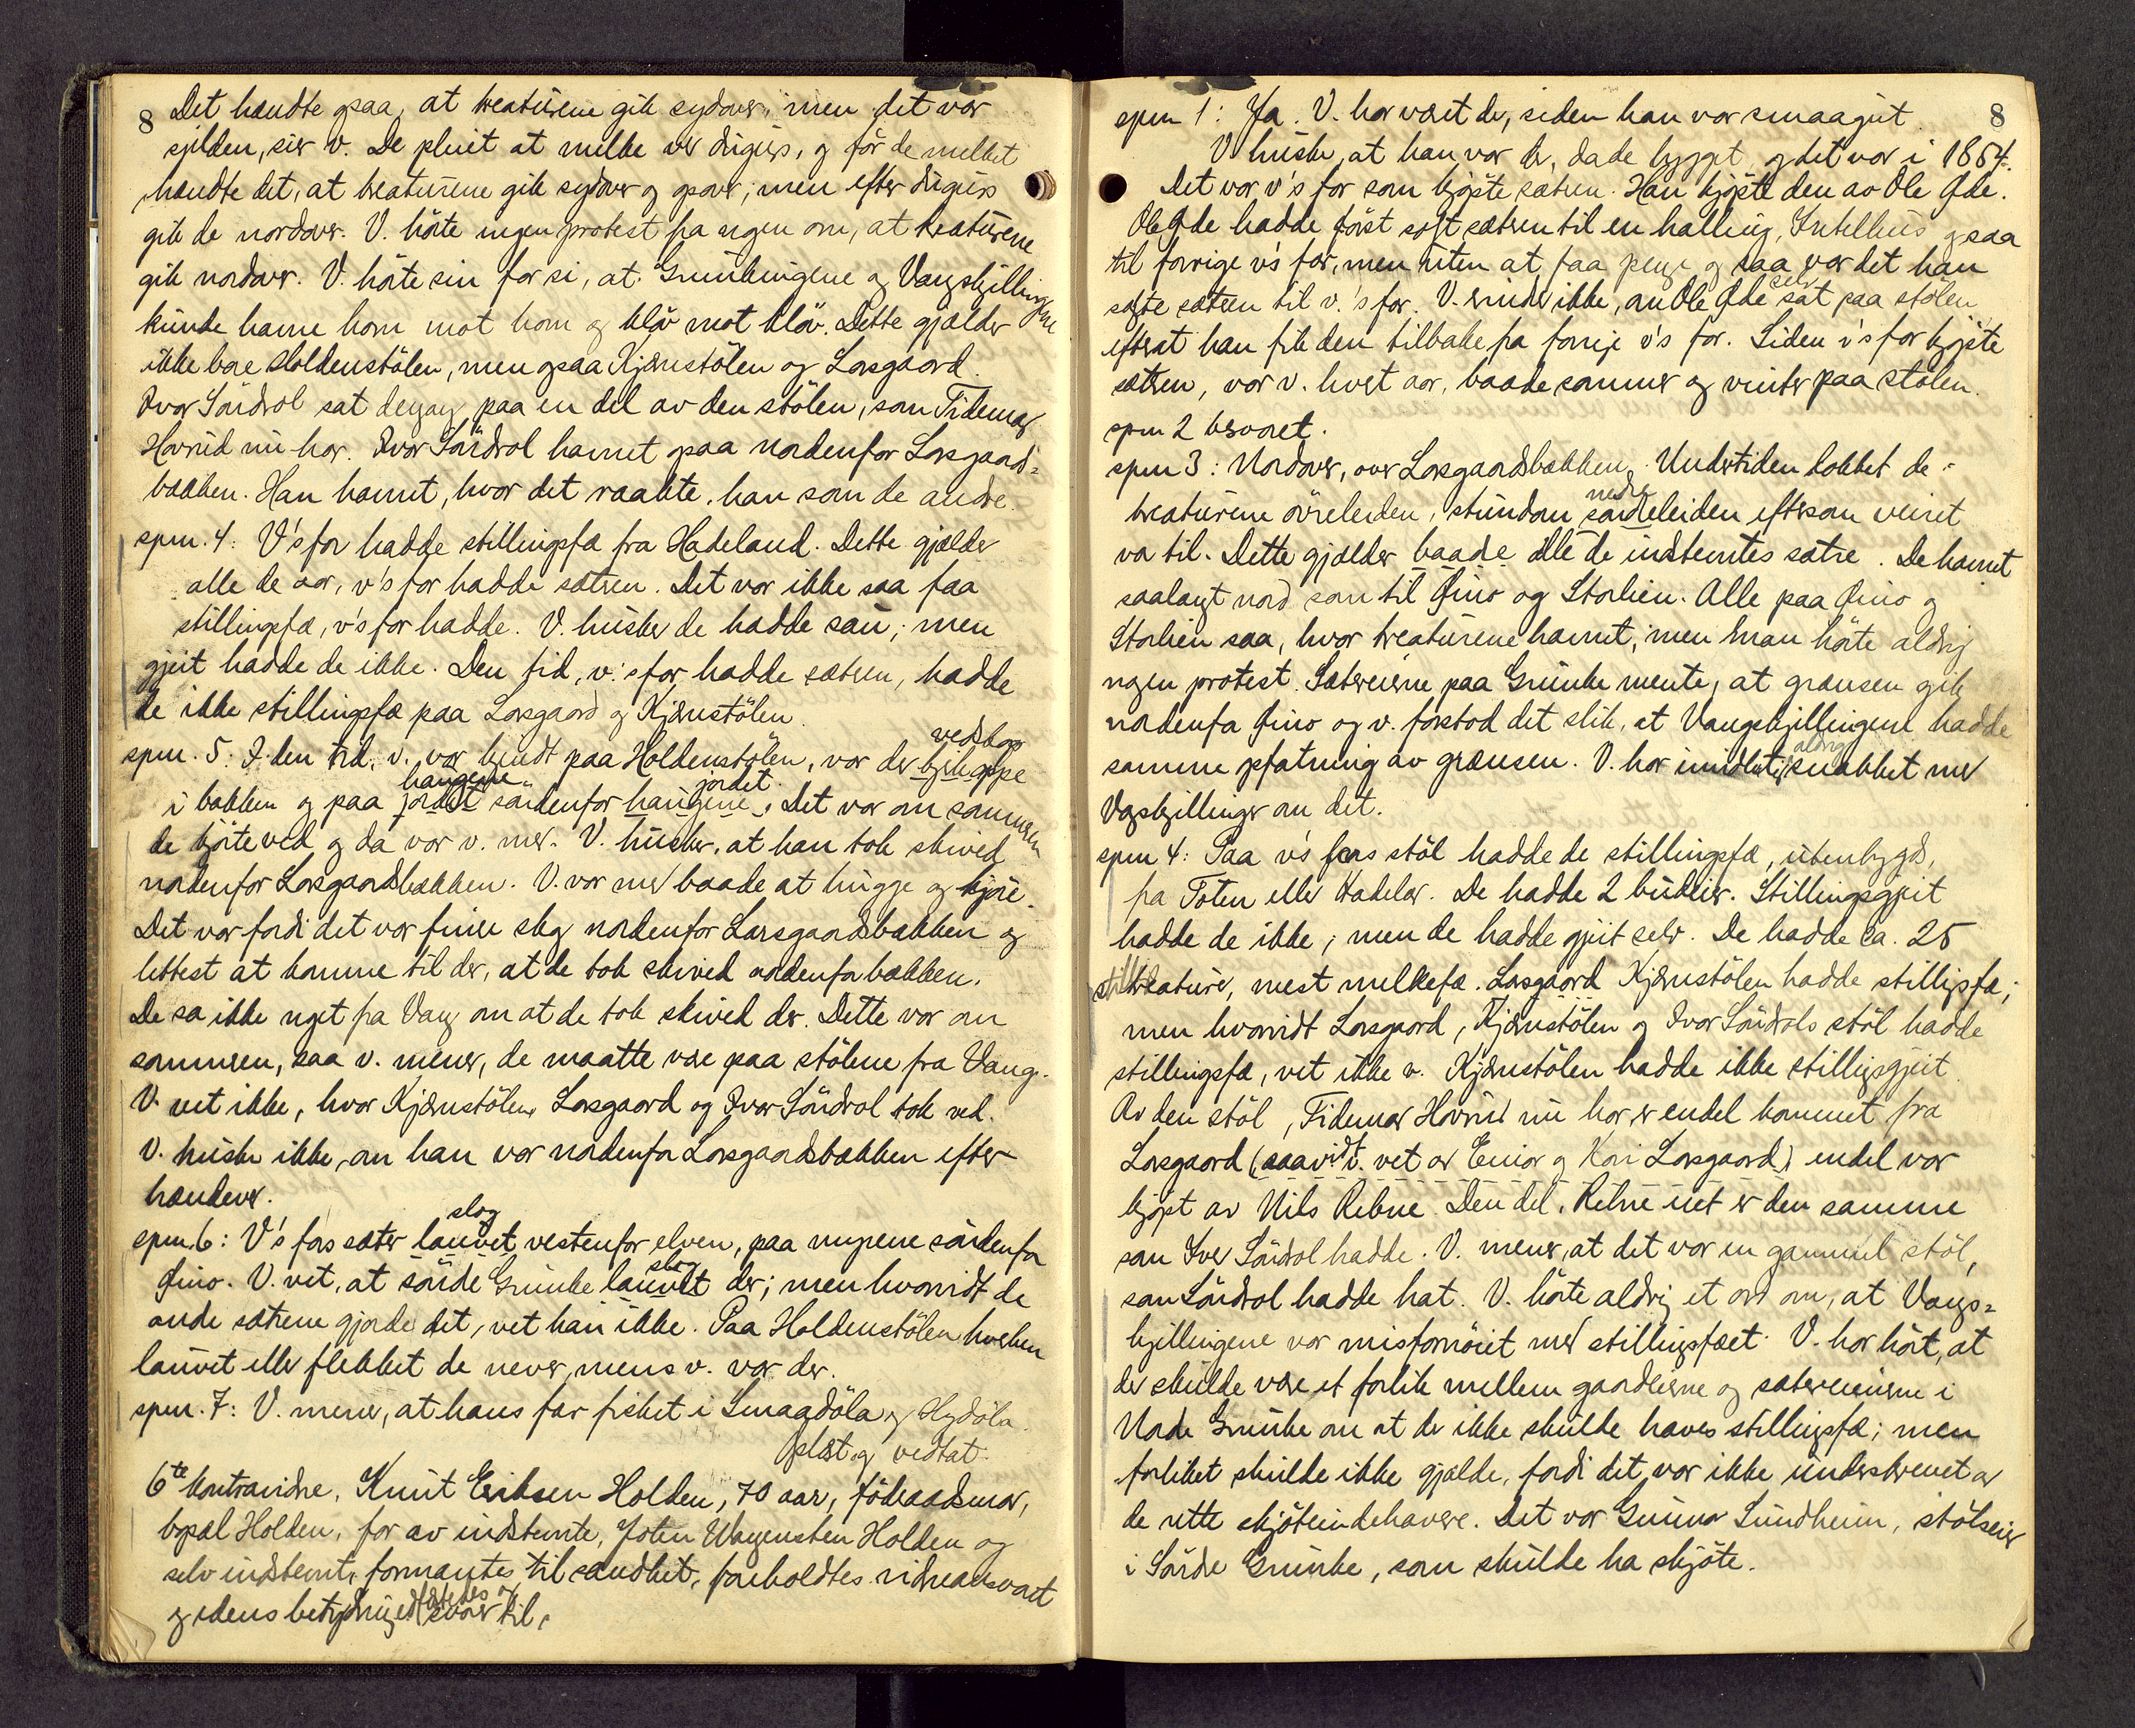 8 Det hændte ogsaa, at kreaturene gik sydover, men det var
sjelden, sier v. De pleiet at melke ved dugurs, og før de melket
hændte det, at kreaturene gik sydover og opover; men efter dugurs
gik de nordover. V. hørte ingen protest fra nogen om, at kreaturene
gik nordover. V. hørte sin far si, at Grunkingene og Vangskjillingene
kunde havne horn mot horn og kløv mot kløv. Dette gjælder
ikke bare Holdenstølen, men ogsaa Kjærnstølen og Lorsgaard.
Ivar Sørdrol sat dengang paa en del av den stølen, som Tidemar
Havrud nu har. Ivar Sørdrol havnet ogsaa nordenfor Lorsgaard-
bækken. Han havnet, hvor det raakte, han som de andre.
spm. 4: V's far hadde stillingsfæ fra Hadeland. Dette gjælder
alle de aar, v's far hadde sætren. Det var ikke saa faa
stillingsfæ, v's far hadde. V. husker de hadde sau; men
gjeit hadde de ikke. Den tid, v.'s far hadde sætren, hadde
de ikke stillingsfæ paa Lorsgaard og Kjærnstølen.
spm. 5: I den tid, v. var kjendt paa Holdenstølen, var der bjerkeskog vedskog
i bakken og paa jordet haugene søndenfor haugene jordet. Det var om sommeren
de kjørte ved og da var v. med. V. husker, at han tok skived
nordenfor Lorsgaardsbækken. V. var med baade at hugge og kjøre.
Det var fordi det var finere skog nordenfor Lorsgaardsbækken og
lettest at komme til der, at de tok skived nordenfor bækken.
De sa ikke noget fra Vang om at de tok skived der. Dette var om
sommeren, saa v. mener, de maatte være paa stølene fra Vang.
V. vet ikke, hvor Kjærnstølen, Lorsgaard og Ivar Sørdrol tok ved.
V. husker ikke, om han var nordenfor Lorsgaardsbækken efter
handever.
spm. 6: V's fars sæter lauvet slog vestenfor elven, paa myrene søndenfor
Grino. V. vet, at søndre Grunke lauvet slog der; men hvorvidt de
andre sætrene gjorde det, vet han ikke. Paa Holdenstølen hverken
lauvet eller flekket de never, mens v. var der.
spm. 7: V. mener, at hans far fisket i Smaadøla og Flydøla.
Oplæst og vedtat.
6te kontravidne, Knut Eriksen Holden, 70 aar, føderaadsmand,
bopæl Holden, far av indstemte, Josten Wagensten Holden og
selv indstemt, formantes til sandhet, foreholdtes vidneansvaret
og edens betydning edfæstedes og svarer til:
8
spm 1: Ja. V. har været der, siden han var smaagut.
V. husker, at han var der, da de bygget, og det var i 1864.
Det var v's far som kjøpte sætren. Han kjøpte den av Ole Gde.
Ole Gde hadde først solt sætren til en halling, Intelhus ogsaa
til forrige v's far, men uten at faa penge og saa var det han
solgte sætren til v.'s far. V. erindrer ikke, om Ole Gde selv sat paa stølen
efterat han fik den tilbake fra forrige v's far. Siden v's far kjøpte
sætren, var v. hvert aar, baade sommer og vinter paa stølen.
spm 2 besvaret.
spm 3: Nordover, over Lorsgaardsbækken. Undertiden lokket de
kreaturene øvreleiden, stundom søndreleiden nedre eftersom veiret
var til. Dette gjælder baade alle de indstemtes sætre. De havnet
saalangt nord som til Grino og Storlien. Alle paa Grino og
Storlien saa, hvor kreaturene havnet; men man hørte aldrig
nogen protest. Sætereierne paa Grunke mente, at grænsen gik
nordenfor Grino og v. forstod det slik, at Vangskjillingene hadde
samme opfatning av grænsen. V. har imidlertid aldrig snakket med
Vangskjillinger om det.
spm 4: Paa v's fars støl hadde de stillingsfæ, utenbygds,
fra Toten eller Hadeland. De hadde 2 budeier. Stillingsgjeit
hadde de ikke; men de hadde gjeit selv. De hadde ca. 25
kreaturer, mest melkefæ. Lorsgaard Kjærnstølen hadde stillingsfæ;
men hvorvidt Lorsgaard, Kjærnstølen og Ivar Sørdrols støl hadde
stillingsfæ, vet ikke v. Kjærnstølen hadde ikke stillingsgjeit.
Av den støl, Tidemar Havrud nu har er endel kommet fra
Lorsgaard (saavidt v. vet av Einar og Kari Lorsgaard) endel var
kjøpt av Nils Rebne. Den del, Rebne eiet er den samme
som Iver Sørdrol hadde. V. mener, at det var en gammel støl,
som Sørdrol hadde hat. V. hørte aldrig et ord om, at Vangs-
kjillingene var misfornøiet med stillingsfæet. V. har hørt, at
der skulde være et forlik mellem gaardeierne og sætereierne i
Nordre Grunke om at der ikke skulde haves stillingsfæ; men
forliket skulde ikke gjælde, fordi det var ikke underskrevet av
de rette skjøteindehavere. Det var Gunnar Sundheim, støleeier
i Søndre Grunke, som skulde ha skjøte.